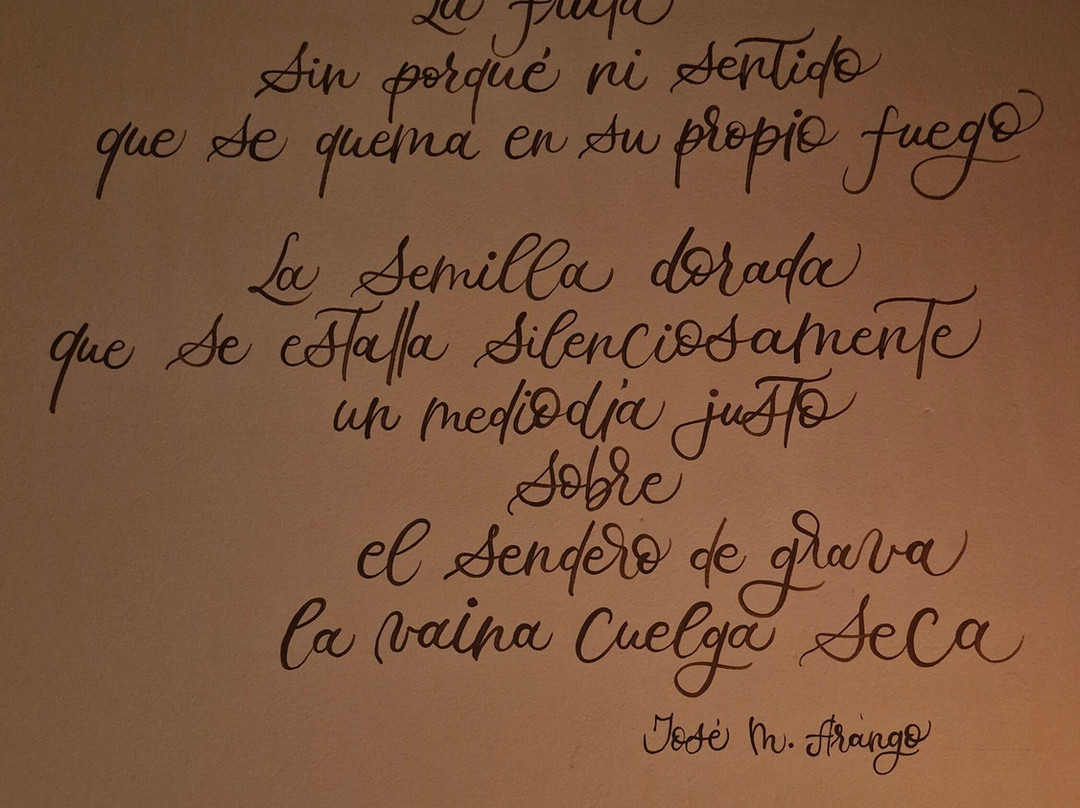 La
sin porqué ni sentido
que se quema en su propio fuego
La semilla dorada
que se estalla silenciosamente
un mediodía justo
sobre
el sendero de grava
la vaina cuelga seca
José M. Arango